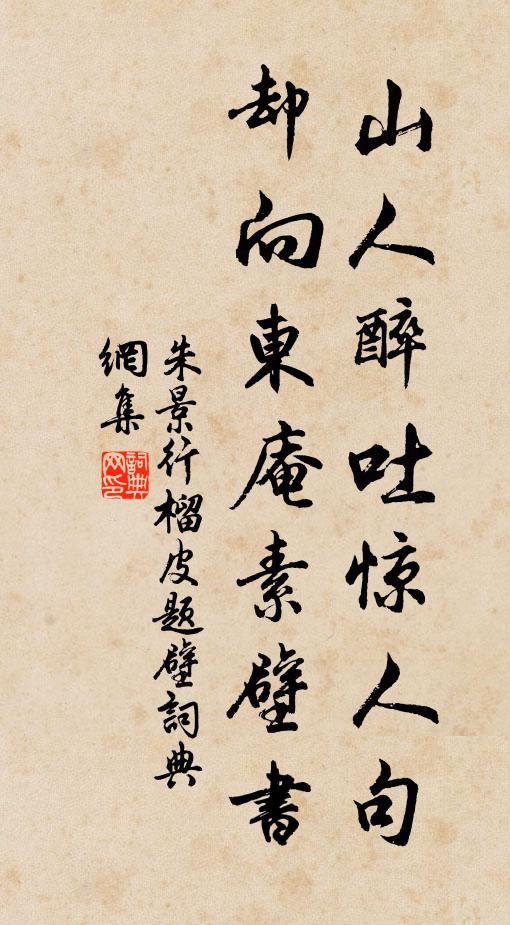 山人醉吐惊人句
却向東庵素壁書
朱景行榴皮题壁詞典
網集
詞典網印